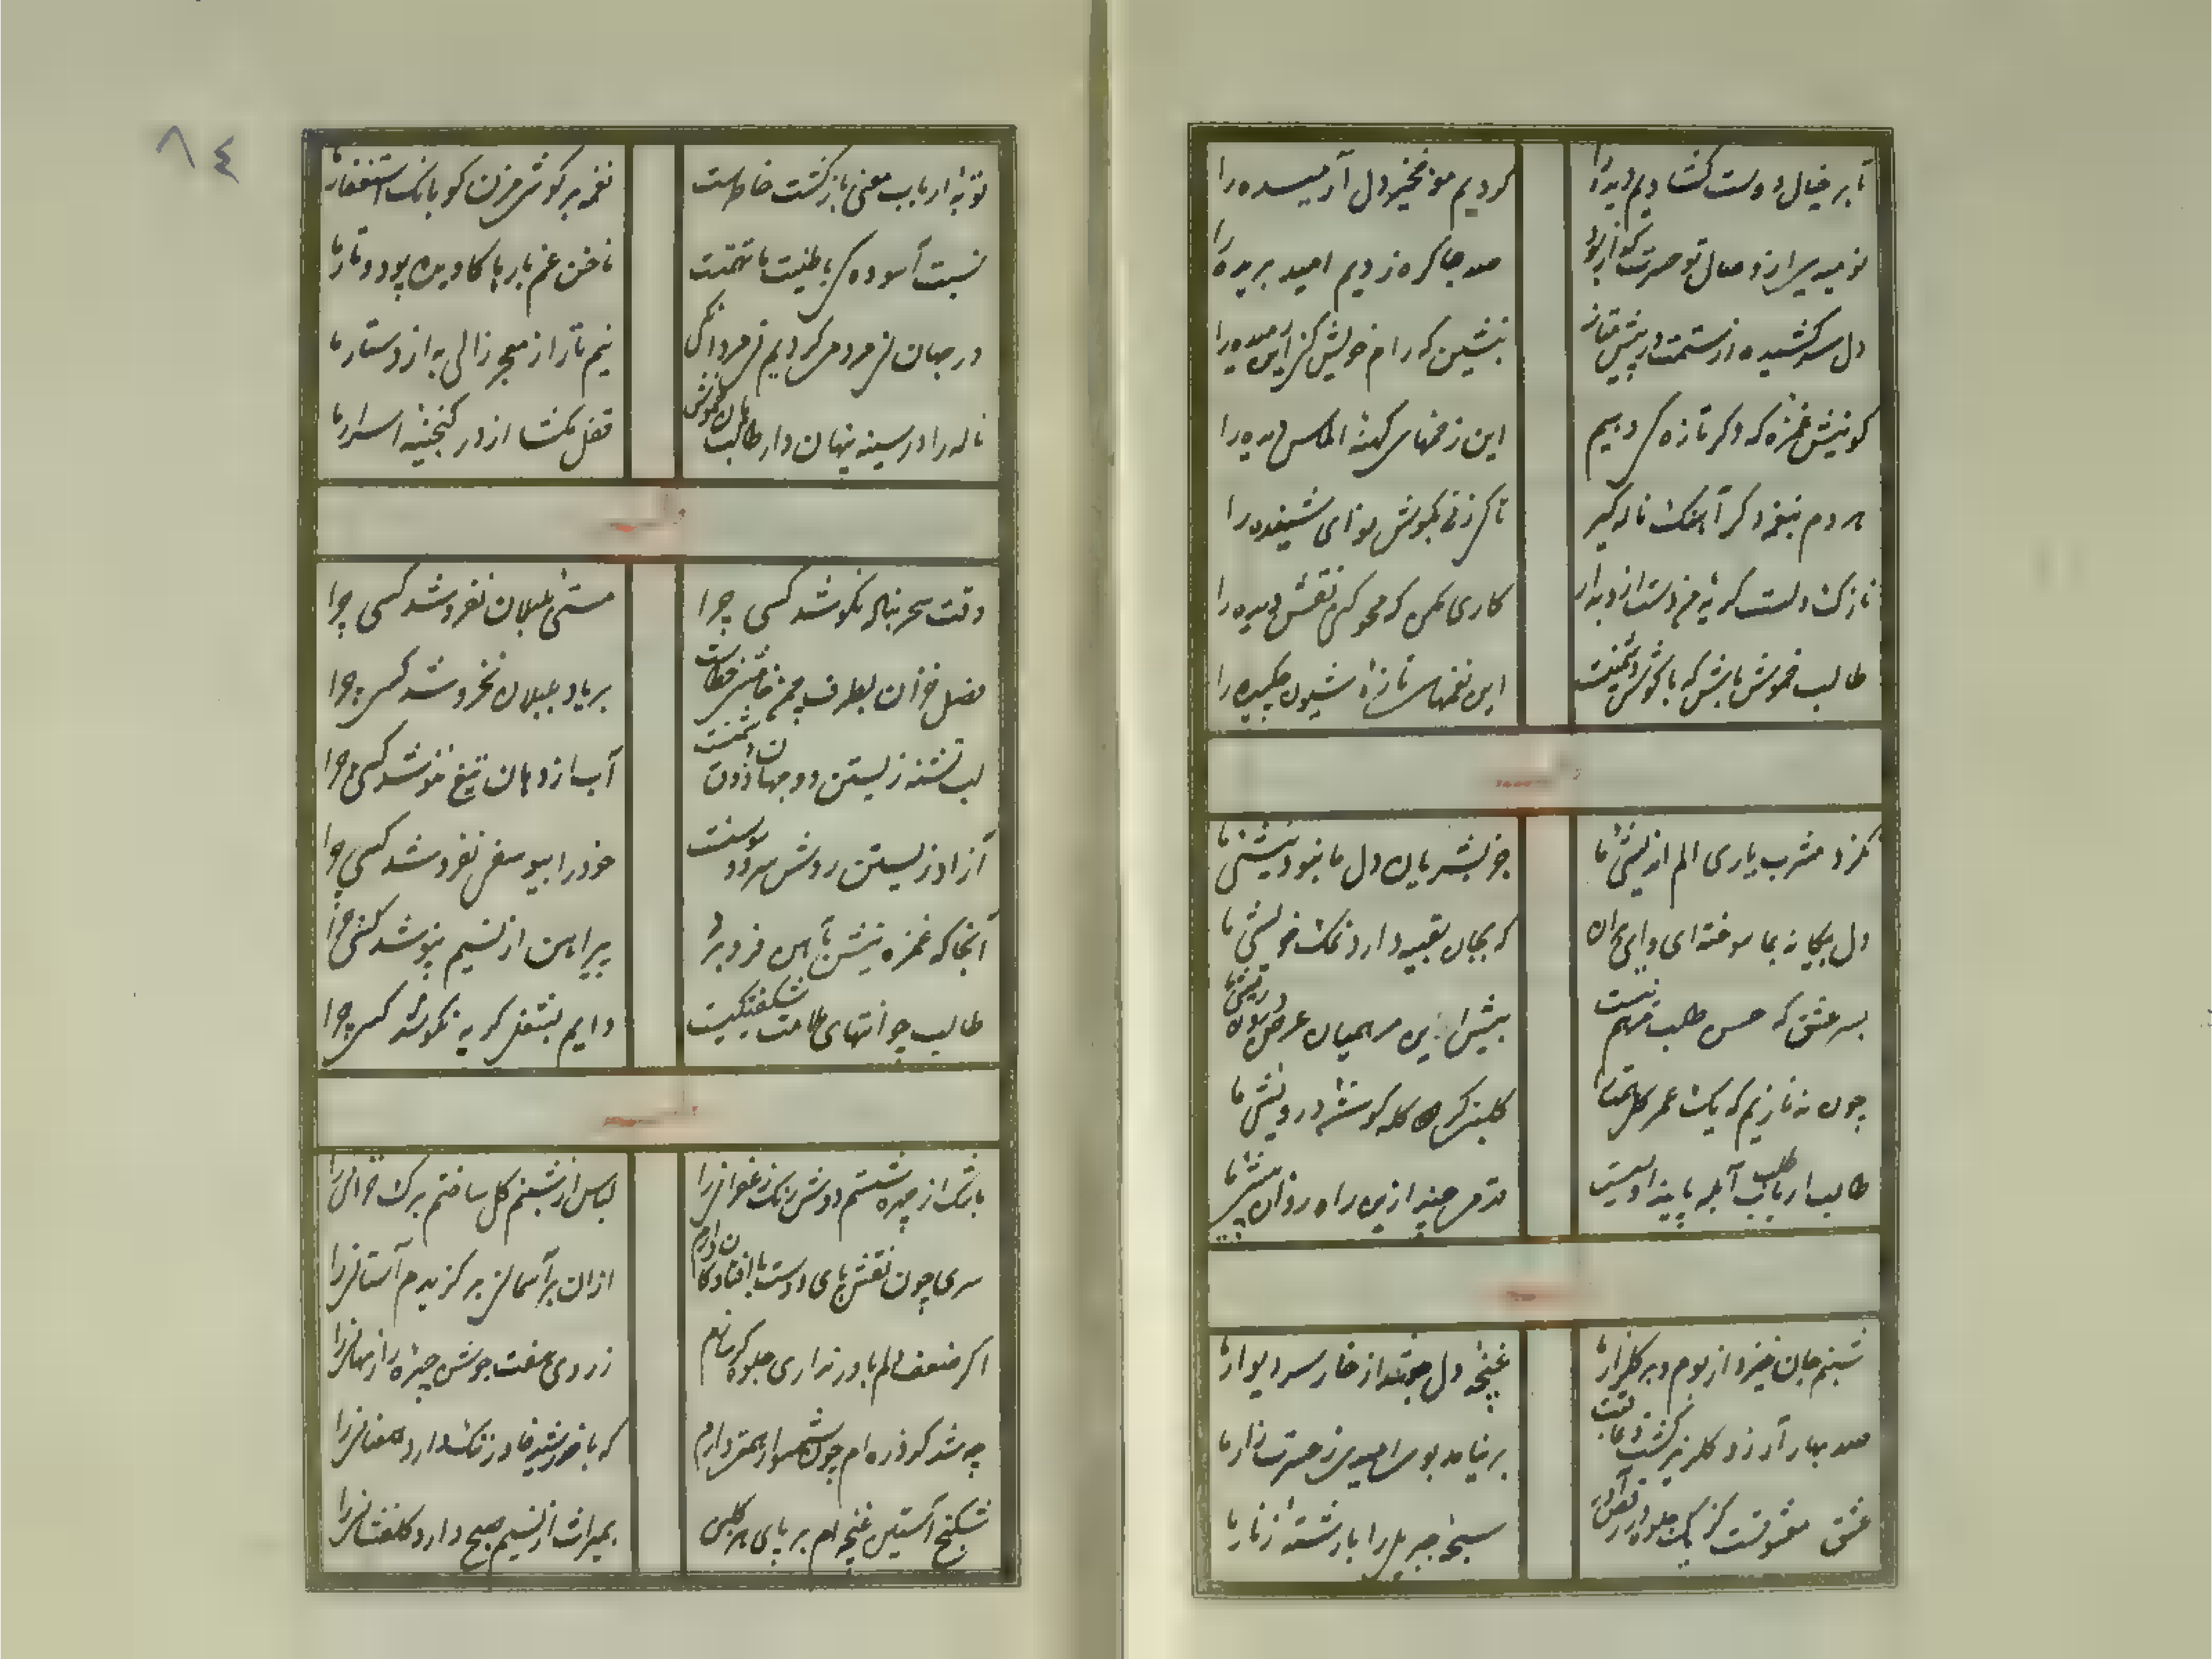 تا بر خیال دوست کشادیم دیده را
کردیم مو نخچیر دل آرمیده را
نومیدیم از وصال تو حسرت
صد جا کره زدیم امید بریده را
دل سرکشیده از ستمت در پیش متاز
بنشین که رام خویش کنم این رمیده را
کو نیش غمزه که دکر تازه کردیم
این زخمهای کهنه الماس دیده را
هر دم بنغمه دکر آهنک ناله گیر
تا کی زنی بکوش نوای شنیده را
نازک دلست کریه
کاری مکن که محو کنی نقش دیده را
طالب خموش باش که با کوش
این نغمهای تازه شیون چکیده را
مشرب یاری الم اندیشی ما
جز بشریان دل ما نبود نیشی ما
دل بیکانه بما سوخته ای وای بران
که بجان تعبیه دارد نمک خویشی ما
بسر عشق که حسن طلب مرهم نیست
پیش این مرهمیان عرض درون ریشی ما
چون ننازیم که یک عمر
کله کوشه درویشی ما
طالب ارباب طلب آبله پایند
قدمی چند ازین راه روان پیشی ما
شبنم جان خیزد از بوم و بر کلزار ما
غنچه دل جوشد از خار سر دیوار ما
صد بهار آرزو کل ریز کشت و عاقبت
بر نیامد بوی امیدی ز حسرت زار ما
عشق معشوقست کز یک جلوه در رقص آورد
سبحه جبریل را با رشته زنار ما
۸٤
توبه ارباب معنی بازکشت خاطرست
نغمه بر کوشم مزن کو بانک استغفار ما
نسبت آسوده کی با طینت ما تهمتست
ناخن غم بارها کاویده پود و تار ما
در جهان از مردمی کردیم نی مردانکی
نیم تار از معجر زالی به از دستار ما
ناله را در سینه پنهان دار طالب
قفل مکشا از در کنجینه اسرار ما
وقت سحر بناله نکوشد کسی چرا
مستی بلبلان نفروشد کسی چرا
فصل خزان بطرف چمن خامشی خطاست
بر یاد بلبلان نخروشد کسی چرا
لب تشنه زیستن دو جهان ذوق
آب از دهان تیغ ننوشد کسی چرا
آزاد زیستن روش سرو و سوسنست
خود را ببو سفی نفروشد کسی چرا
آنجا که غمزه نیش بآهن فرو برد
پیراهن از نسیم نپوشد کسی چرا
طالب چو انتهای ملامت شکفتکیست
دایم بشغل کریه نکوشد کسی چرا
باشک از چهره شستم دوش رنک زعفرانی را
لباس از شبنم کل ساختم برک خزانی را
سری چون نقش پای دوست با افتادکان دارم
ازان بر آسمانی برکزیدم آستانی را
اکر ضعف دلم باور نداری جلوه کن
ز روی صفت جوش چهره راز نهانی را
چه شد کر ذره ام چون همتی دارم
که با خورشید خاور ننک دارد همعنانی را
شکنج آستین غنچه ام بر پای هر کلبن
بمیراث از نسیم صبح دارد کلفشانی را